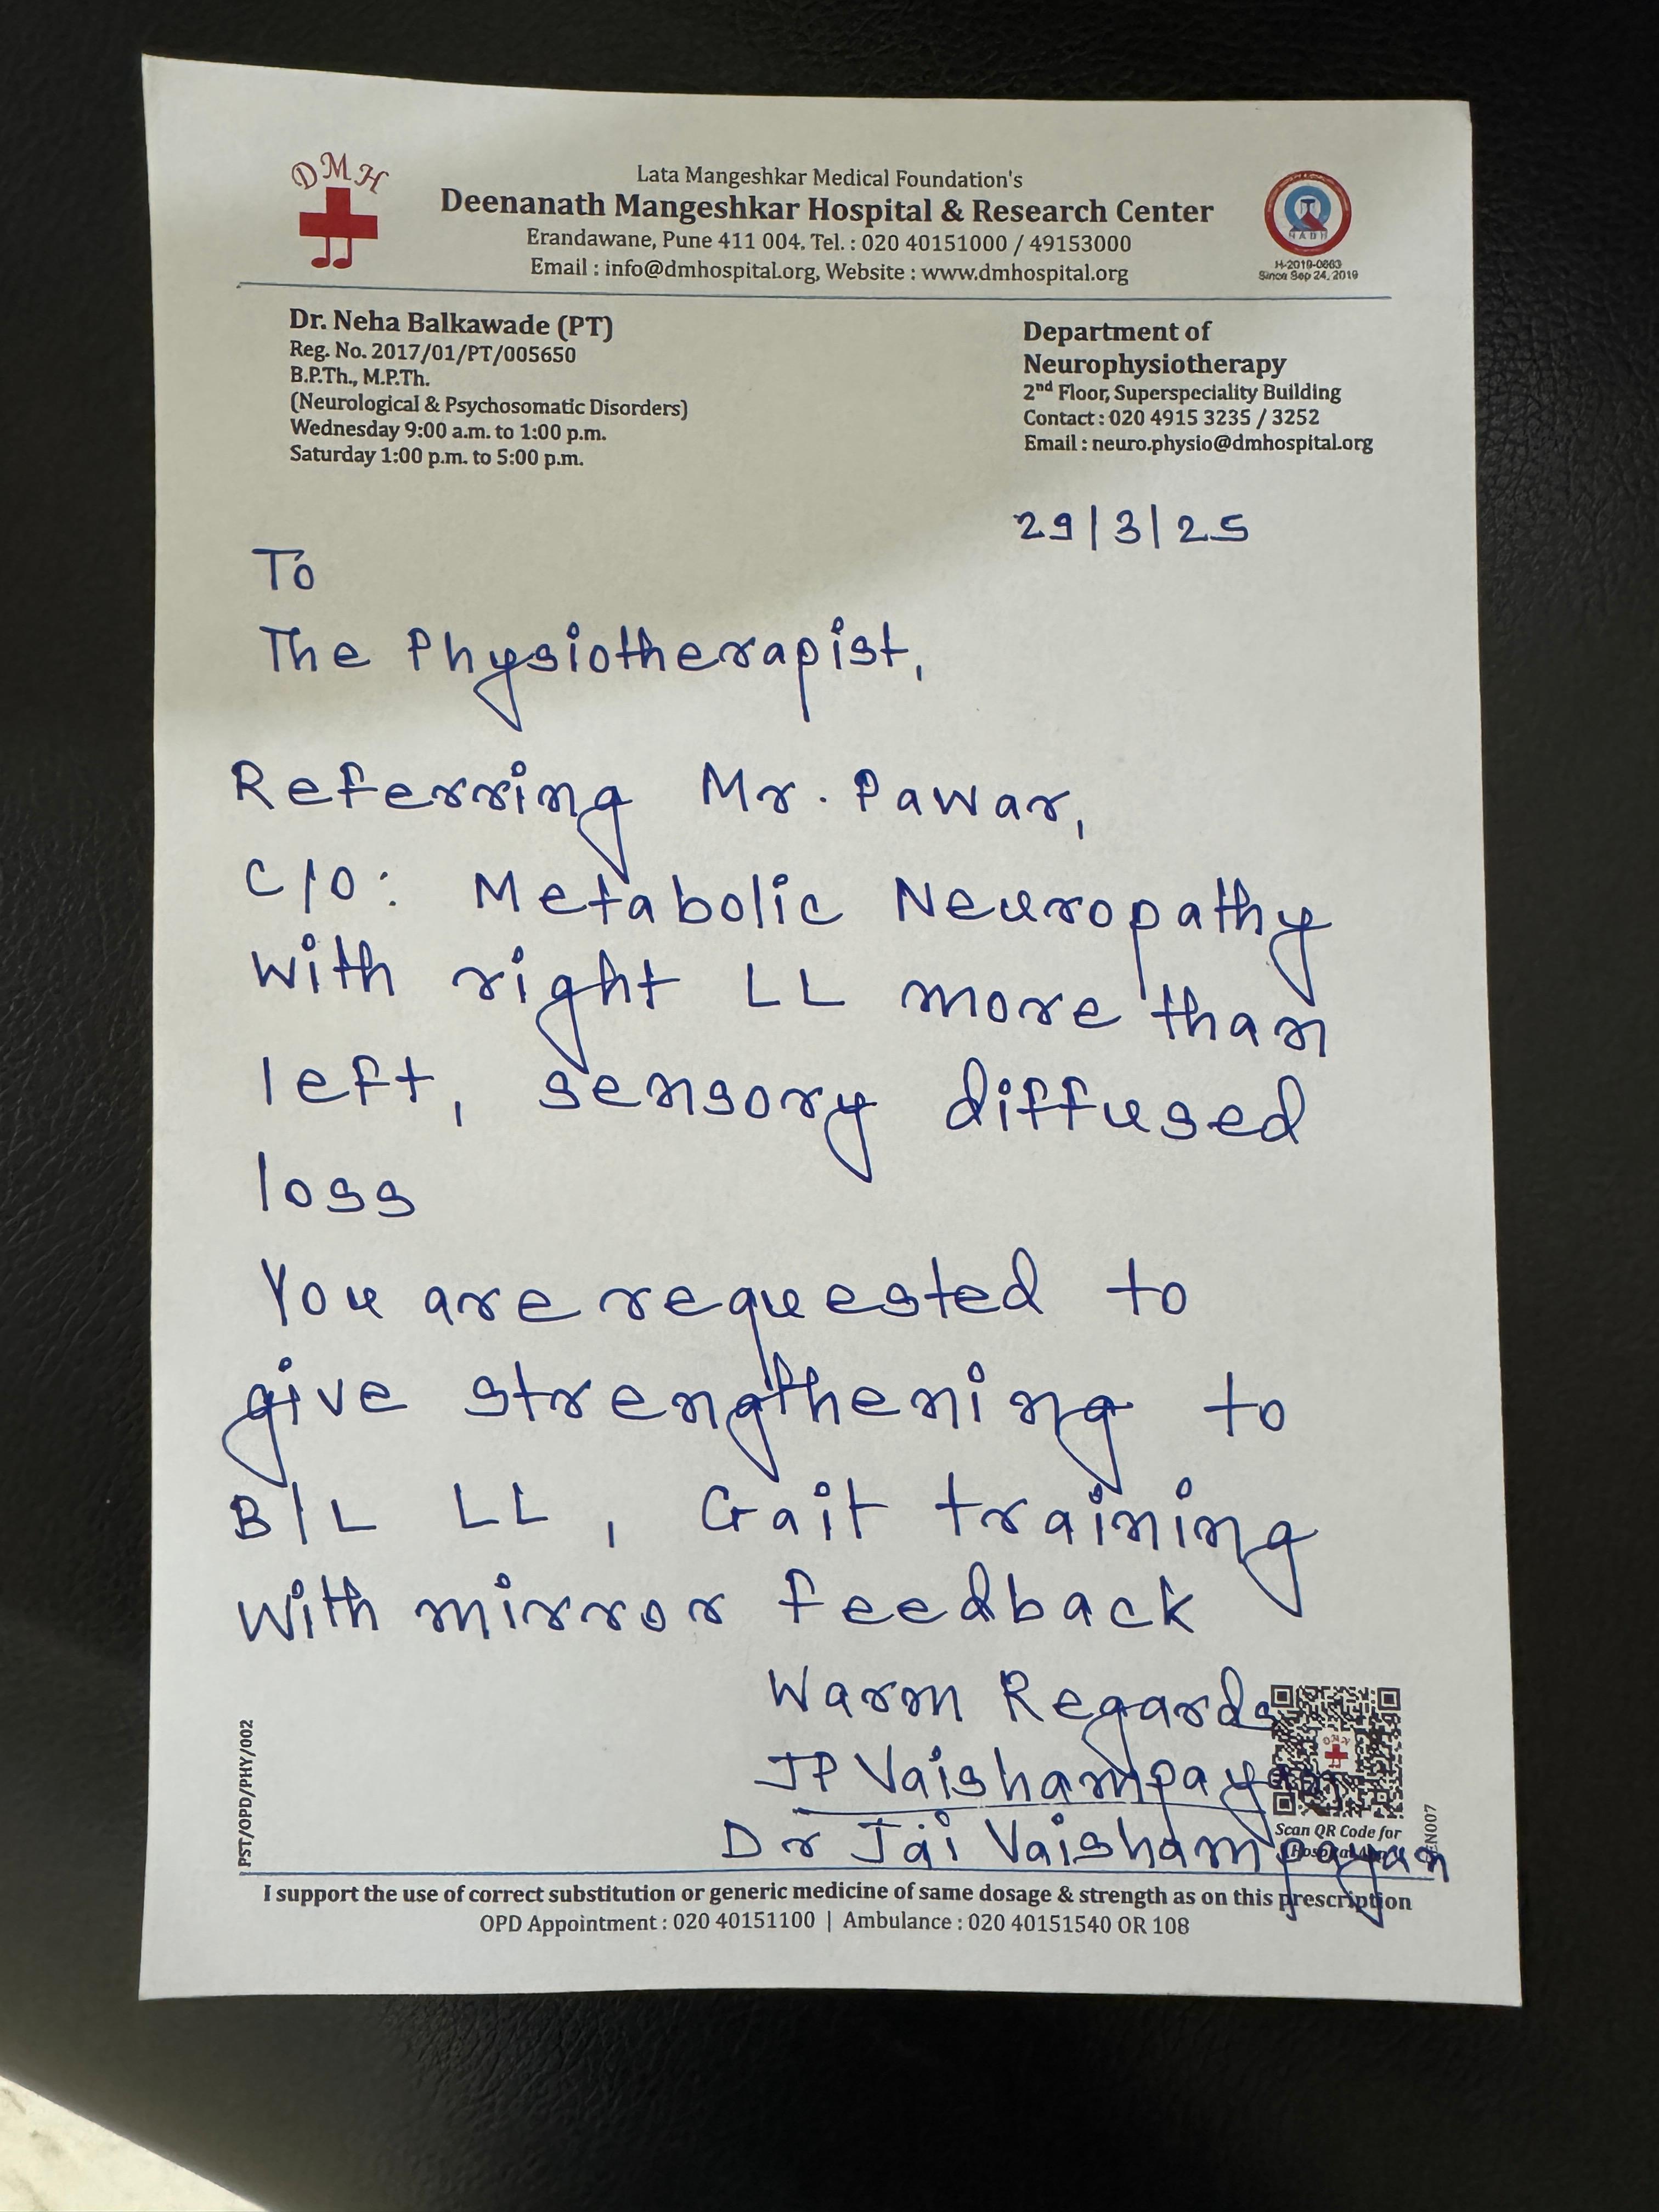 DMH
Lata Mangeshkar Medical Foundation's
Deenanath Mangeshkar Hospital & Research Center
Erandawane, Pune 411 004. Tel. : 020 40151000 / 49153000
Email : info@dmhospital.org, Website : www.dmhospital.org
NABH
H-2019-0663
Since Sep 24, 2019
Dr. Neha Balkawade (PT)
Reg. No. 2017/01/PT/005650
B.P.Th., M.P.Th.
(Neurological & Psychosomatic Disorders)
Wednesday 9:00 a.m. to 1:00 p.m.
Saturday 1:00 p.m. to 5:00 p.m.
Department of
Neurophysiotherapy
2nd Floor, Superspeciality Building
Contact : 020 4915 3235 / 3252
Email : neuro.physio@dmhospital.org
29/3/25
To
The Physiotherapist,
Referring Mr. Pawar,
C/O: Metabolic Neuropathy
with right LL more than
left, sensory diffused
loss
You are requested to
give strengthening to
B/L LL, Gait training
with mirror feedback
Warm Regards
JP Vaishampayan
Dr Jai Vaishampayan
Scan QR Code for
Hospital
PST/OPD/PHY/002
I support the use of correct substitution or generic medicine of same dosage & strength as on this prescription
OPD Appointment : 020 40151100 | Ambulance : 020 40151540 OR 108